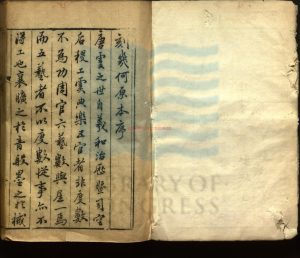 刻幾何原本序
唐虞之世自羲和治曆暨司空
后稷工虞典樂五官者非度數
不為功周官六藝數與居一焉
而五藝者不以度數從事亦不
得工也襄曠之於音般墨之於械
LIBRARY OF
CONGRESS